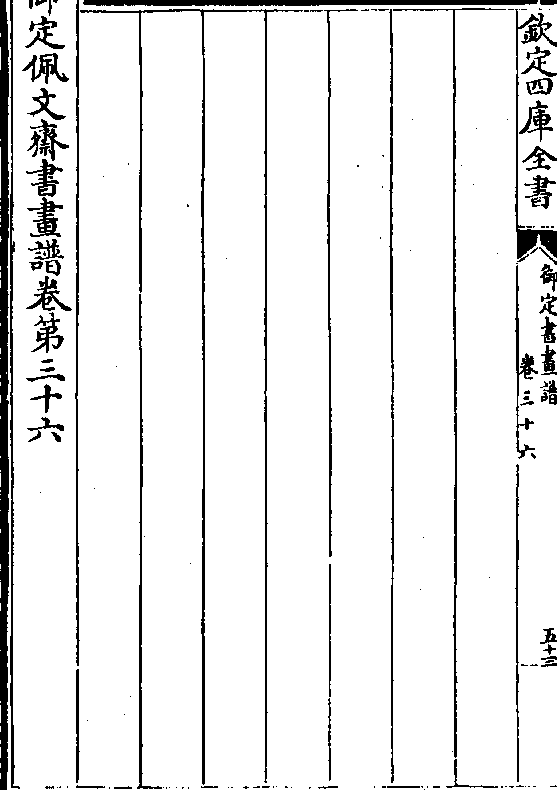 欽定四庫全書
御定書畫譜
卷三十六
五十三
御定佩文齋書畫譜卷第三十六